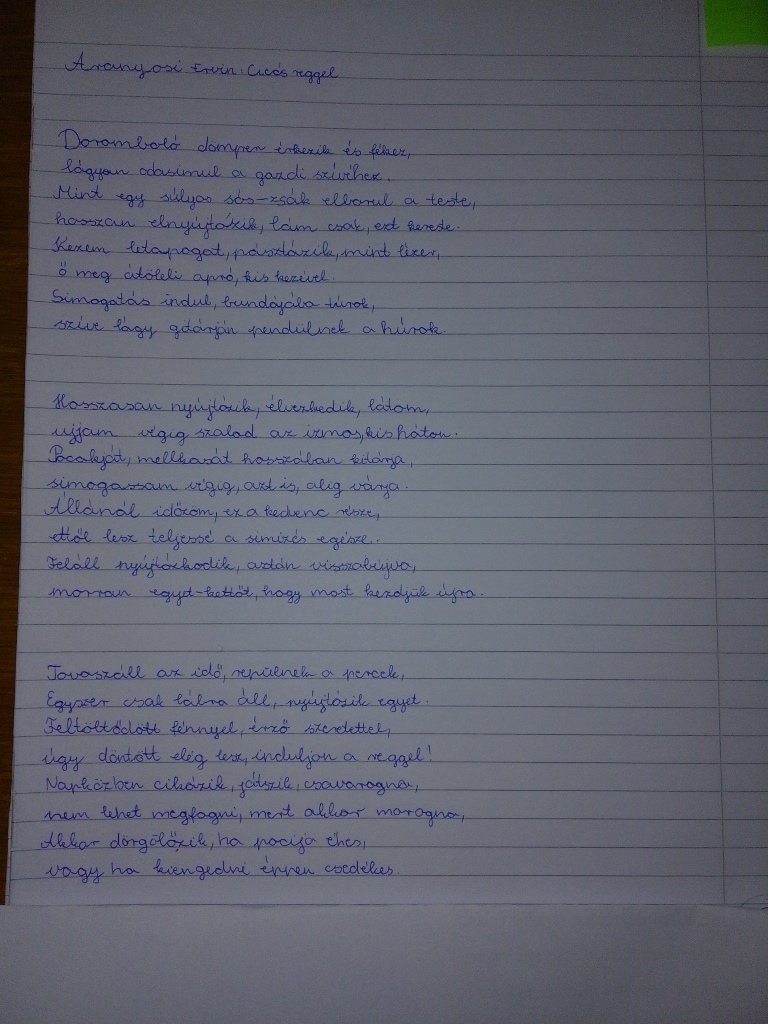 Aranyosi Ervin: Cicás reggel
Doromboló dömper érkezik és fékez,
lágyan odasimul a gazdi szívéhez.
Mint egy súlyos sós-zsák elborul a teste,
hosszan elnyújtózik, lám csak, ezt kereste.
Kezem letapogat, pásztázik, mint lézer,
ő meg átöleli apró, kis kezével.
Simogatás indul, bundájába túrok,
szíve lágy gitárján pendülnek a húrok.
Hosszasan nyújtózik, élvezkedik, látom,
ujjam végig szalad az izmos, kis háton.
Pocakját, mellkasát hosszában kitárja,
simogassam végig, azt is, alig várja.
Állánál időzöm, ez a kedvenc része,
ettől lesz teljessé a simizés egésze.
Feláll nyújtózkodik, aztán visszabújva,
morran egyet-kettőt, hogy most kezdjük újra.
Tovaszáll az idő, repülnek a percek,
Egyszer csak lábra áll, nyújtózik egyet.
Feltöltődött fénnyel, érző szeretettel,
úgy döntött elég lesz, induljon a reggel!
Napközben cikázik, játszik, csavarogna,
nem lehet megfogni, mert akkor morogna,
Akkor dörgölőzik, ha pocija éhes,
vagy ha kiengedni éppen esedékes.